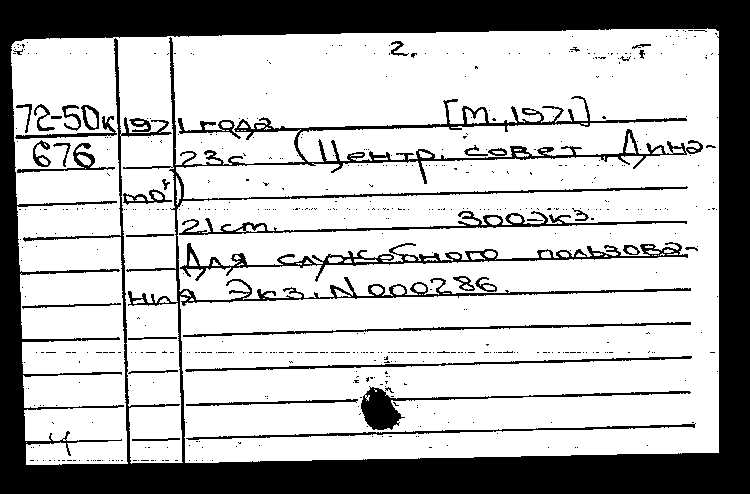 2.
72-50к 1971 года. [М., 1971].
676 23с (Центр. совет „Дина-
мо")
21 cm. 300экз.
Для служебного пользова-
ния Экз. N 000286.
4